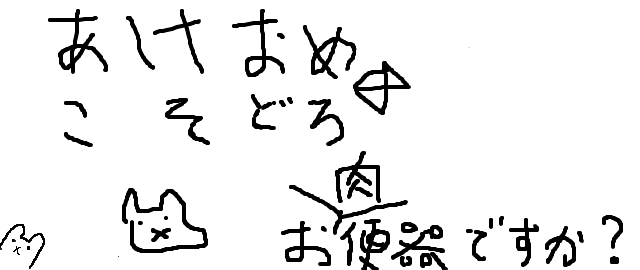 あけおめ
こそどろ
肉
お便器ですか？